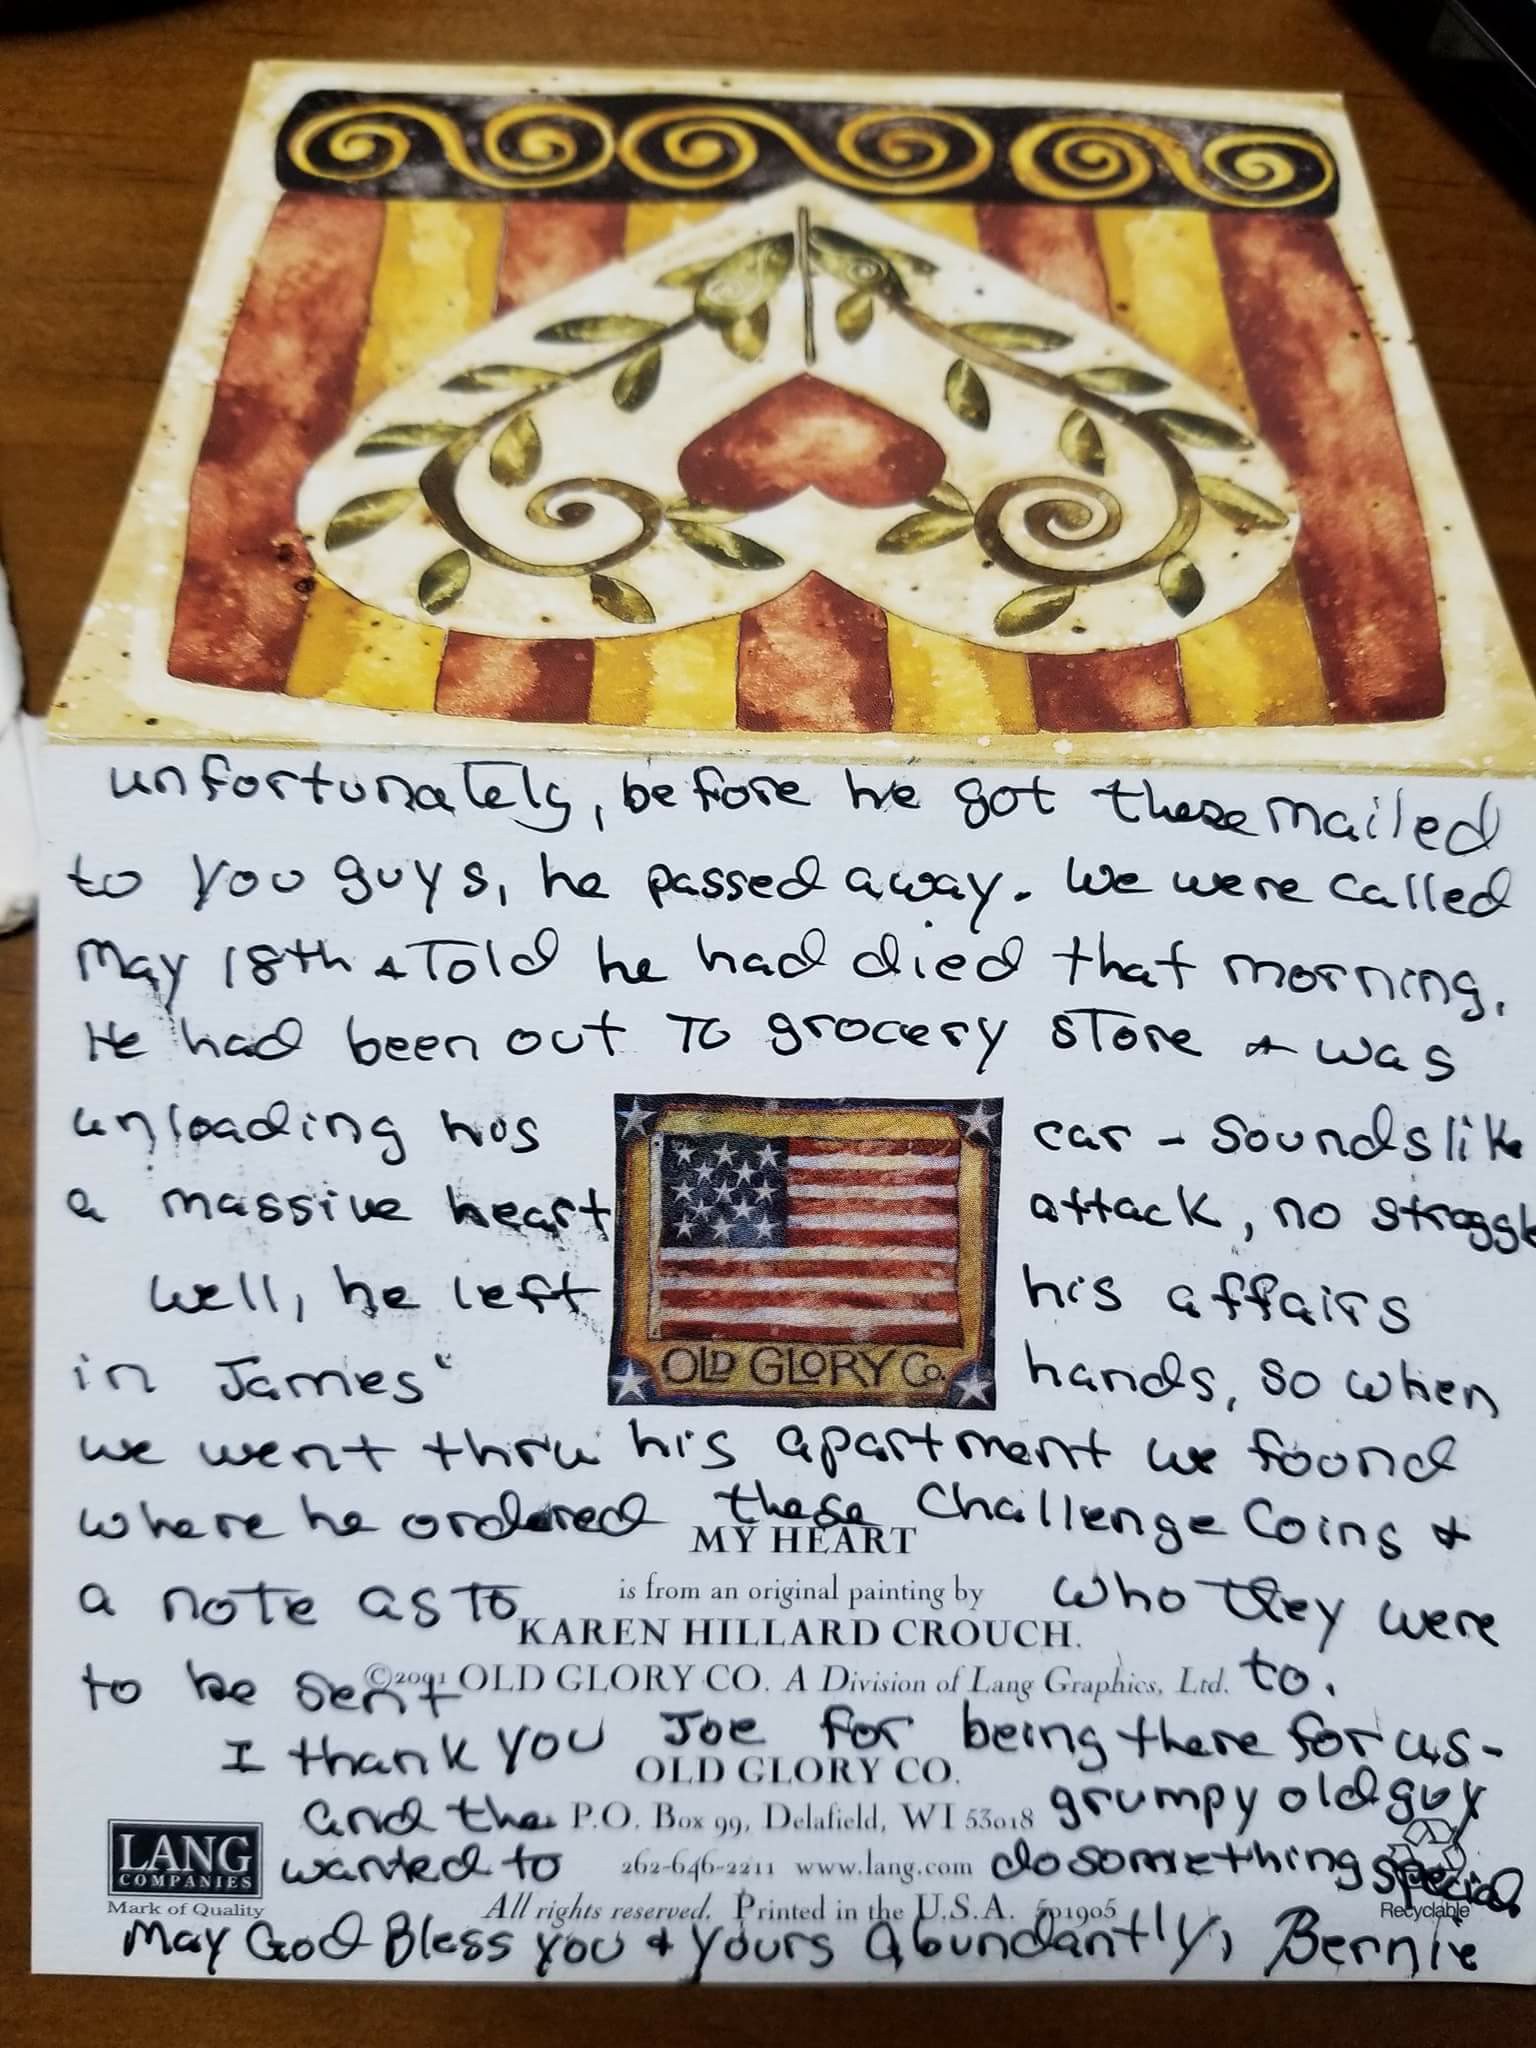 unfortunately, before he got these mailed
to you guys, he passed away. We were called
May 18th & Told he had died that morning.
He had been out To grocery store & was
unloading his car - sounds like
a massive heart attack, no struggle
OLD GLORY Co.
Well, he left his affairs
in James' hands, so when
we went thru his apartment we found
where he ordered these Challenge Coins &
MY HEART
a note as to who they were
is from an original painting by
KAREN HILLARD CROUCH.
to be sent to.
©2001 OLD GLORY CO. A Division of Lang Graphics, Ltd.
I thank you Joe for being there for us-
OLD GLORY CO.
and the grumpy old guy
P.O. Box 99, Delafield, WI 53018
wanted to do something special
262-646-2211 www.lang.com
LANG
COMPANIES
Mark of Quality
All rights reserved. Printed in the U.S.A. 501905
Recyclable
May God Bless you & yours Abundantly, Bernie